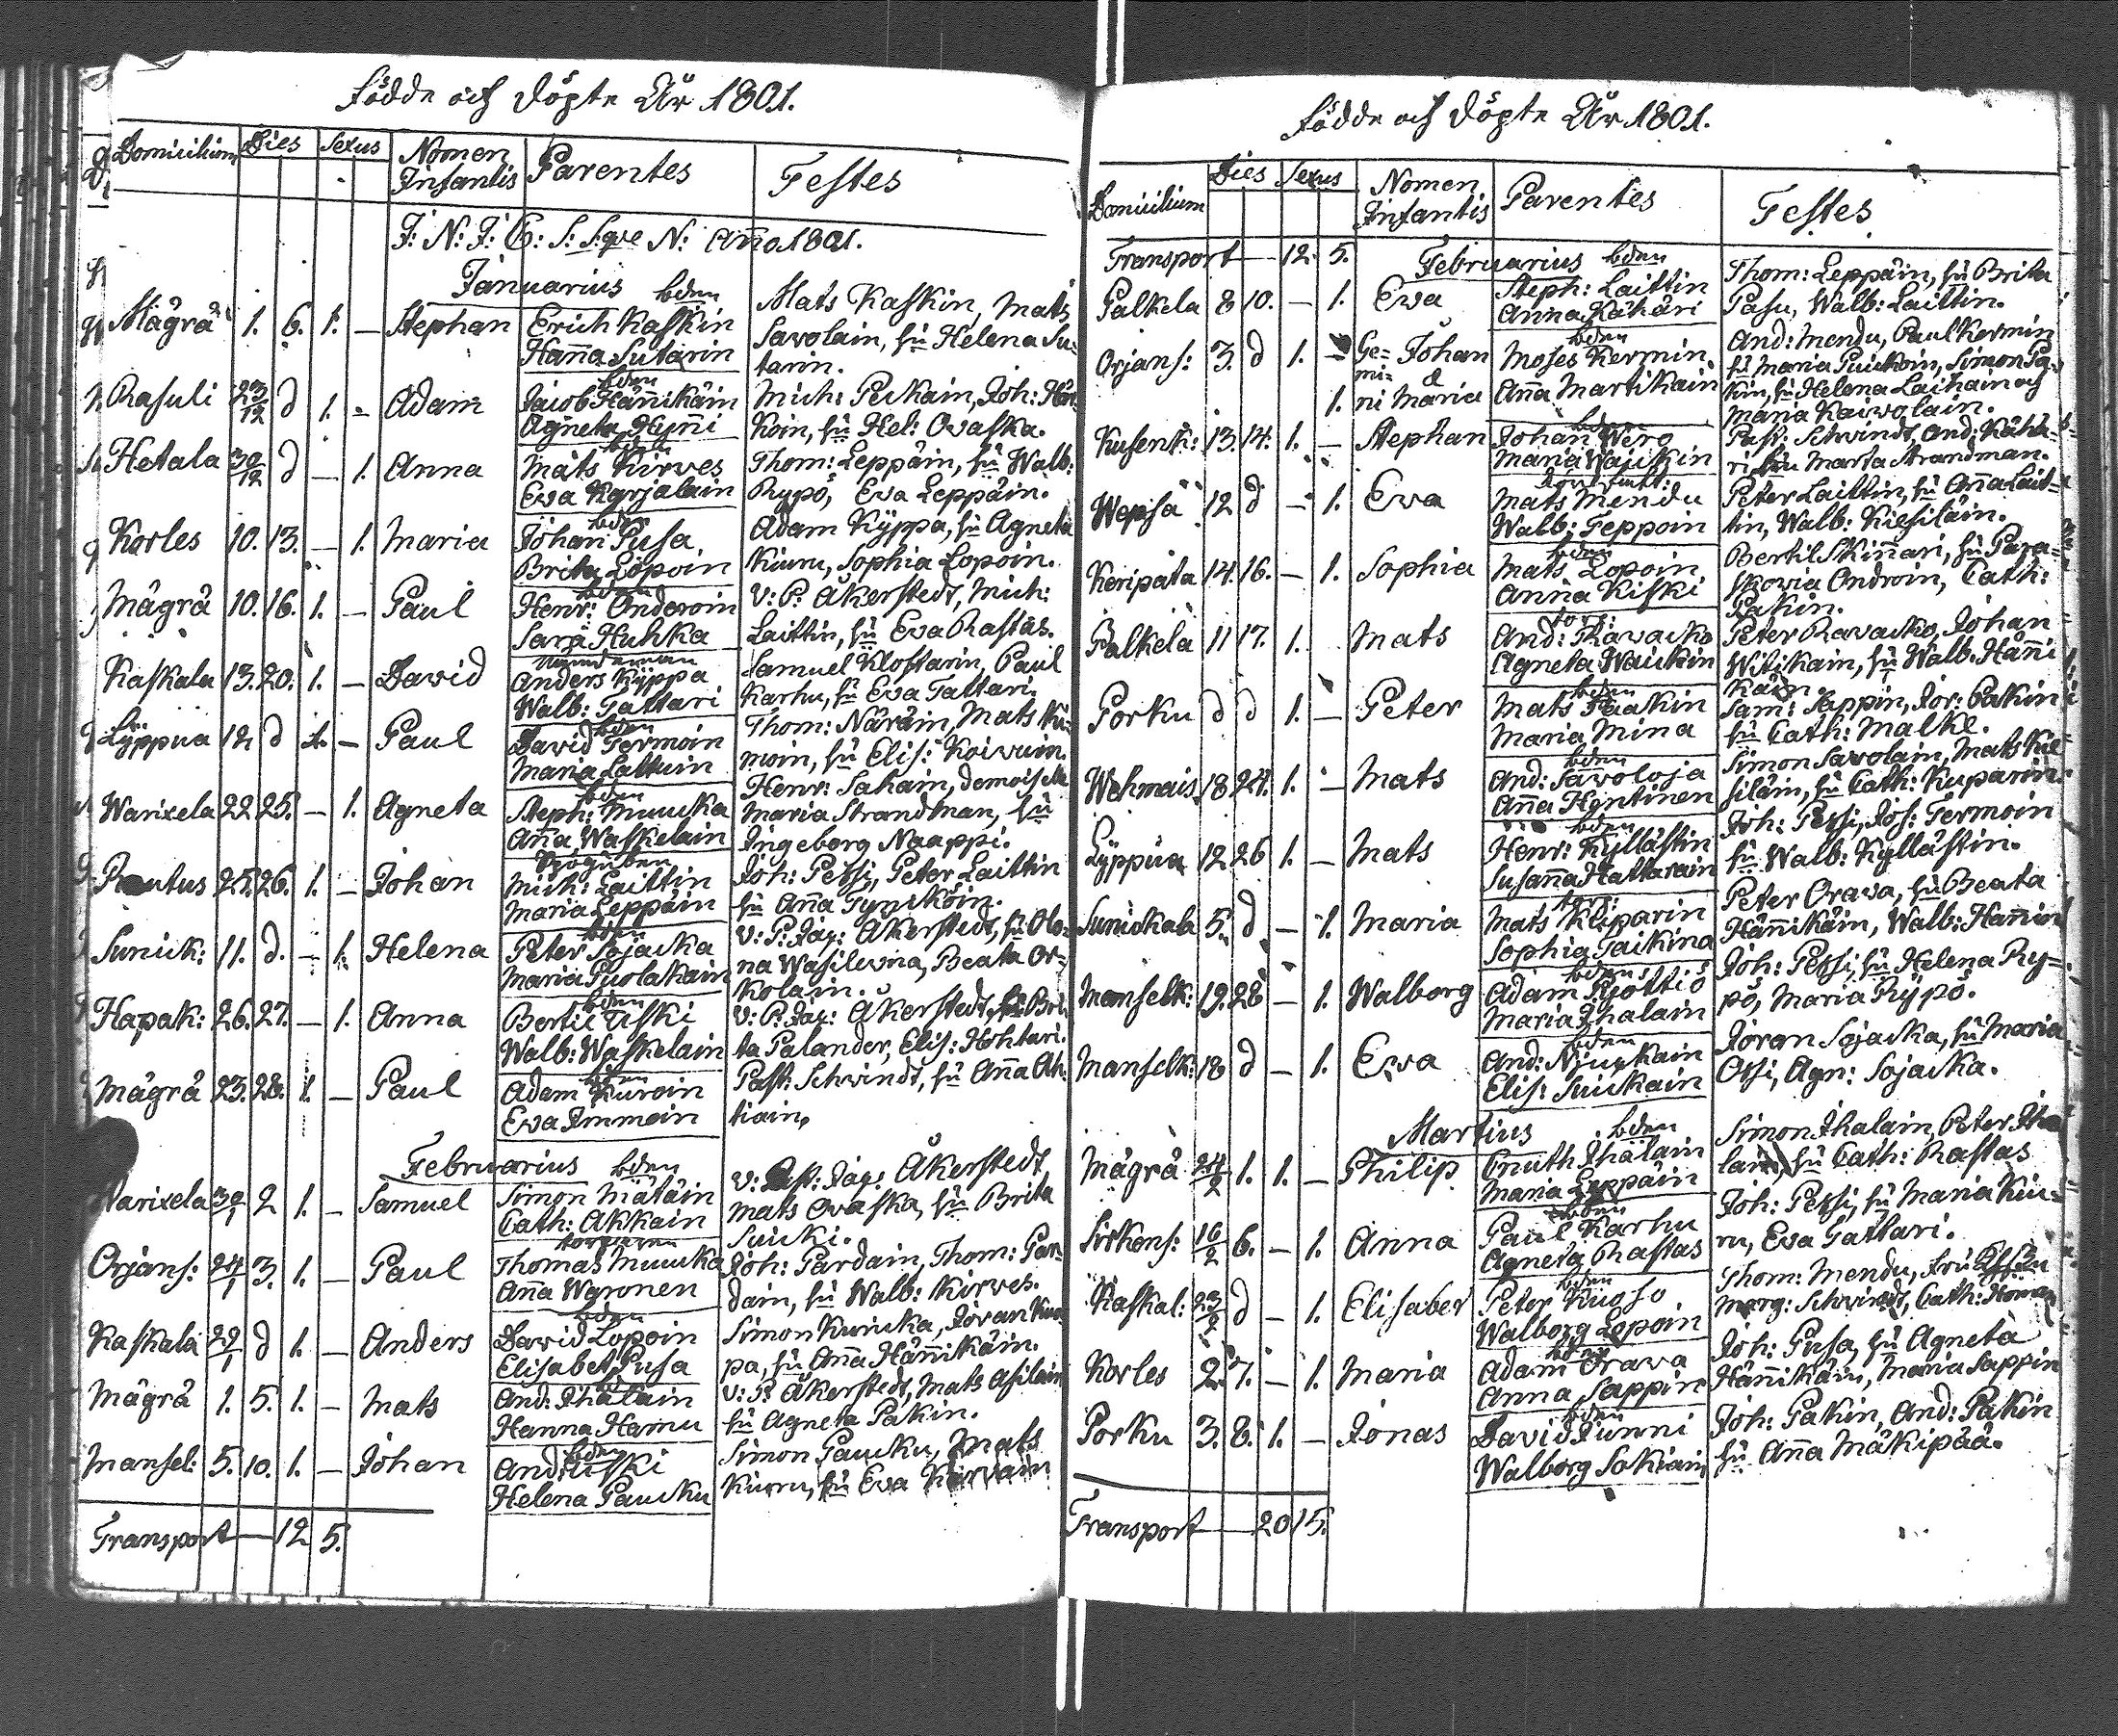 Födde och Döpte År 1801.
Domicilium Dies Sexus Nomen Infantis Parentes Testes
J: N: J: C: S: S:qve N: Anno 1801.
Januarius
Mågrå 1. 6. 1. — Stephan bden Erich Kaskin Hanna Sutarin Mats Kaskin, Mats Savolain, hu Helena Sutarin.
Rasuli 23/12 d 1. - Adam bden Jacob Hännikäin Agneta Hynni Mich: Peikain, Joh: hu Hel: Ovaska.
Hetala 30/12 d — 1. Anna bden Mats Kirves Eva Karjalain Thom: Leppäin, hu Walb: Rypö, Eva Leppäin.
Korles 10. 13. — 1. Maria bden Johan Pusa Brita Lopoin Adam Kyppa, hu Agneta Kiuru, Sophia Lopoin.
Mågrå 10. 16. 1. — Paul bden Henr: Onderoin Sara Huhka V: P: Åkerstedt, Mich: Laittin, hu Eva Rastas.
Kaskala 13. 20. 1. — David Anders Kyppa Walb: Tattari Samuel Klostarin, Paul Karhu, hu Eva Tattari.
Lyppua 12 d 1. — Paul bden David Termoin Maria Lattuin Thom: Näräin, Mats hu Elis: Koivuin.
Warixela 22 25. — 1. Agneta bden Steph: Muucka Anna Waskelain Henr: Sahain, demoiselle Maria Strandman, hu Ingeborg Naappi.
Rautus 25. 26. 1. — Johan Mich: Laittin Maria Leppäin Joh: Pessi, Peter Laittin hu Anna Tynickoin.
Sunick: 11. d. — 1. Helena bden Peter Sojacka Maria Puolakain V: P: Jag: Åkerstedt, hu Olona Wasilewna, Beata Orkolain.
Hapak: 26. 27. — 1. Anna bden Bertil Uski Walb: Waskelain V: P: Jag: Åkerstedt, hu Brita Palander, Elis: Kohtari.
Mågrå 23. 28. 1. — Paul bden Adam Kuroin Eva Immoin Past: Schvindt, hu Anna
Februarius
Warixela 30/1 2 1. — Samuel bden Simon Mätäin Cath: Akkain V: Past: Jag: Åkerstedt, Mats Ovaska, hu Brita Suicki.
Orjans: 24/1 3. 1. — Paul Thomas Muucka Anna Waronen Joh: Pardain, Thom: Pardain, hu Walb: Kirves.
Kaskala 29/1 d 1. — Anders bden David Lopoin Elisabet Pusa Simon Kuricka, Jöran hu Anna Hännikäin.
Mågrå 1. 5. 1. — Mats And: Ihalain Hanna Hamu V: P: Åkerstedt, Mats Asilain hu Agneta Pakin.
Mansel: 5. 10. 1. — Johan bden And: Uski Helena Paucku Simon Paucku, Mats Kiuru, hu Eva
Transport — 12 5.
Födde och Döpte År 1801.
Domicilium Dies Sexus Nomen Infantis Parentes Testes
Transport — 12. 5. Februarius
Palkela 8 10. — 1. Eva bden Steph: Laittin Anna Kähäri Thom: Leppäin, hu Brita Pasu, Walb: Laittin.
Orjans: 3. d 1. — 1. Gemini Johan & Maria bden Moses Kermin Anna Martikain And: Mendu, Paul Kermin hu Maria Puickoin, Simon hu Helena Laihain och Maria Kaivolain.
Kusenk: 13. 14. 1. — Stephan bden Johan Wero Maria Waickin Past: Schvindt, And: Kähäri hu Marta Strandman.
Wepsä 12 d — 1. Eva Mats Mendu Walb: Teppoin Peter Laittin, hu Anna Laittin, Walb: Kiesiläin.
Keripata 14. 16. — 1. Sophia bden Mats Lopoin Anna Kiski Bertil Skinnari, hu Paraskovia Ondroin, Cath: Pakin.
Palkela 11 17. 1. Mats torp: And: Ravacko Agneta Waickin Peter Ravacko, Johan Witikain, hu Walb: Hännikäin.
Porku d d 1. — Peter bden Mats Paakin Maria Mina Sam: Sappin, Jör: Pakin hu Cath: Malke.
Wehmais 18 24. 1. — Mats bden And: Savoloja Anna Hyntinen Simon Savolain, Mats Kiesiläin, hu Cath: Kuparin.
Lyppua 12 26 1. — Mats bden Henr: Kyllästin Susanna Hattarain Joh: Pessi, Jos: Termoin hu Walb: Kyllästin.
Sunickala 5. d — 1. Maria torp: Mats Kuparin Sophia Taikina Peter Orava, hu Beata Hännikäin, Walb: Hännin
Manselk: 19. 28 — 1. Walborg bden Adam Pyöttiö Maria Ihalain Joh: Pessi, hu Helena Rypö, Maria Rypö.
Manselk: 18 d — 1. Eva bden And: Nyyckain Elis: Suickain Jöran Sojacka, hu Maria Ossi, Agn: Sojacka.
Martius
Mågrå 24/2 1. 1. — Philip bden Cnuth Ihalain Maria Leppäin Simon Ihalain, Peter Ihalain, hu Cath: Rastas
Sirkens: 16/2 6. — 1. Anna bden Paul Karhu Agneta Rastas Joh: Pessi, hu Maria Kiuru, Eva Tattari.
Kaskal: 23/2 d — 1. Elisabet bden Peter Kuoso Walborg Lopoin Thom: Mendu, Marg: Schvindt, Cath:
Korles 2. 7. — 1. Maria bden Adam Orava Anna Sappin Joh: Pusa, hu Agneta Hännikäin, Maria Sappin
Porku 3. 8. 1. — Jonas bden David Junni Walborg Sokiain Joh: Pakin, And: Pakin hu Anna Mäkipää.
Transport — 20 15.